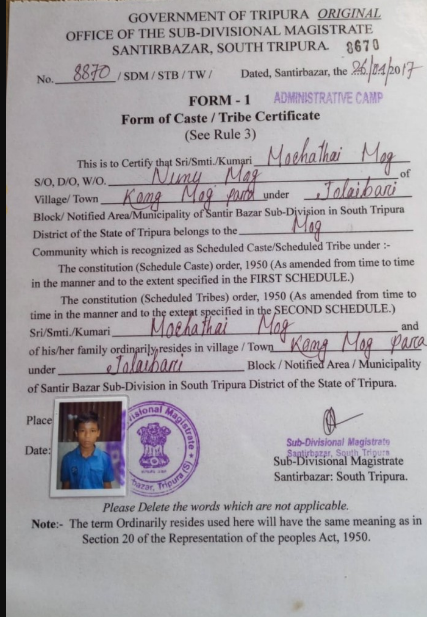 GOVERNMENT OF TRIPURA ORIGINAL
OFFICE OF THE SUB-DIVISIONAL MAGISTRATE
SANTIRBAZAR, SOUTH TRIPURA. 8670
No. 8870 / SDM / STB / TW / Dated, Santirbazar, the 26/01/2017
FORM - 1 ADMINISTRATIVE CAMP
Form of Caste / Tribe Certificate
(See Rule 3)
This is to Certify that Sri/Smti./Kumari Mochathai Mog
S/O, D/O, W/O. Mog of
Village/ Town Kong Mog para under Jolaibari
Block/ Notified Area/Municipality of Santir Bazar Sub-Division in South Tripura
District of the State of Tripura belongs to the Mog
Community which is recognized as Scheduled Caste/Scheduled Tribe under :-
The constitution (Schedule Caste) order, 1950 (As amended from time to time
in the manner and to the extent specified in the FIRST SCHEDULE.)
The constitution (Scheduled Tribes) order, 1950 (As amended from time to
time in the manner and to the extent specified in the SECOND SCHEDULE.)
Sri/Smti./Kumari Mochathai Mog and
of his/her family ordinarily resides in village / Town Kong Mog para
under Jolaibari Block / Notified Area / Municipality
of Santir Bazar Sub-Division in South Tripura District of the State of Tripura.
Place
Date:
Divisional Magistrate
Tripura (S)
Sub-Divisional Magistrate
Santirbazar, South Tripura
Sub-Divisional Magistrate
Santirbazar: South Tripura.
Please Delete the words which are not applicable.
Note:- The term Ordinarily resides used here will have the same meaning as in
Section 20 of the Representation of the peoples Act, 1950.